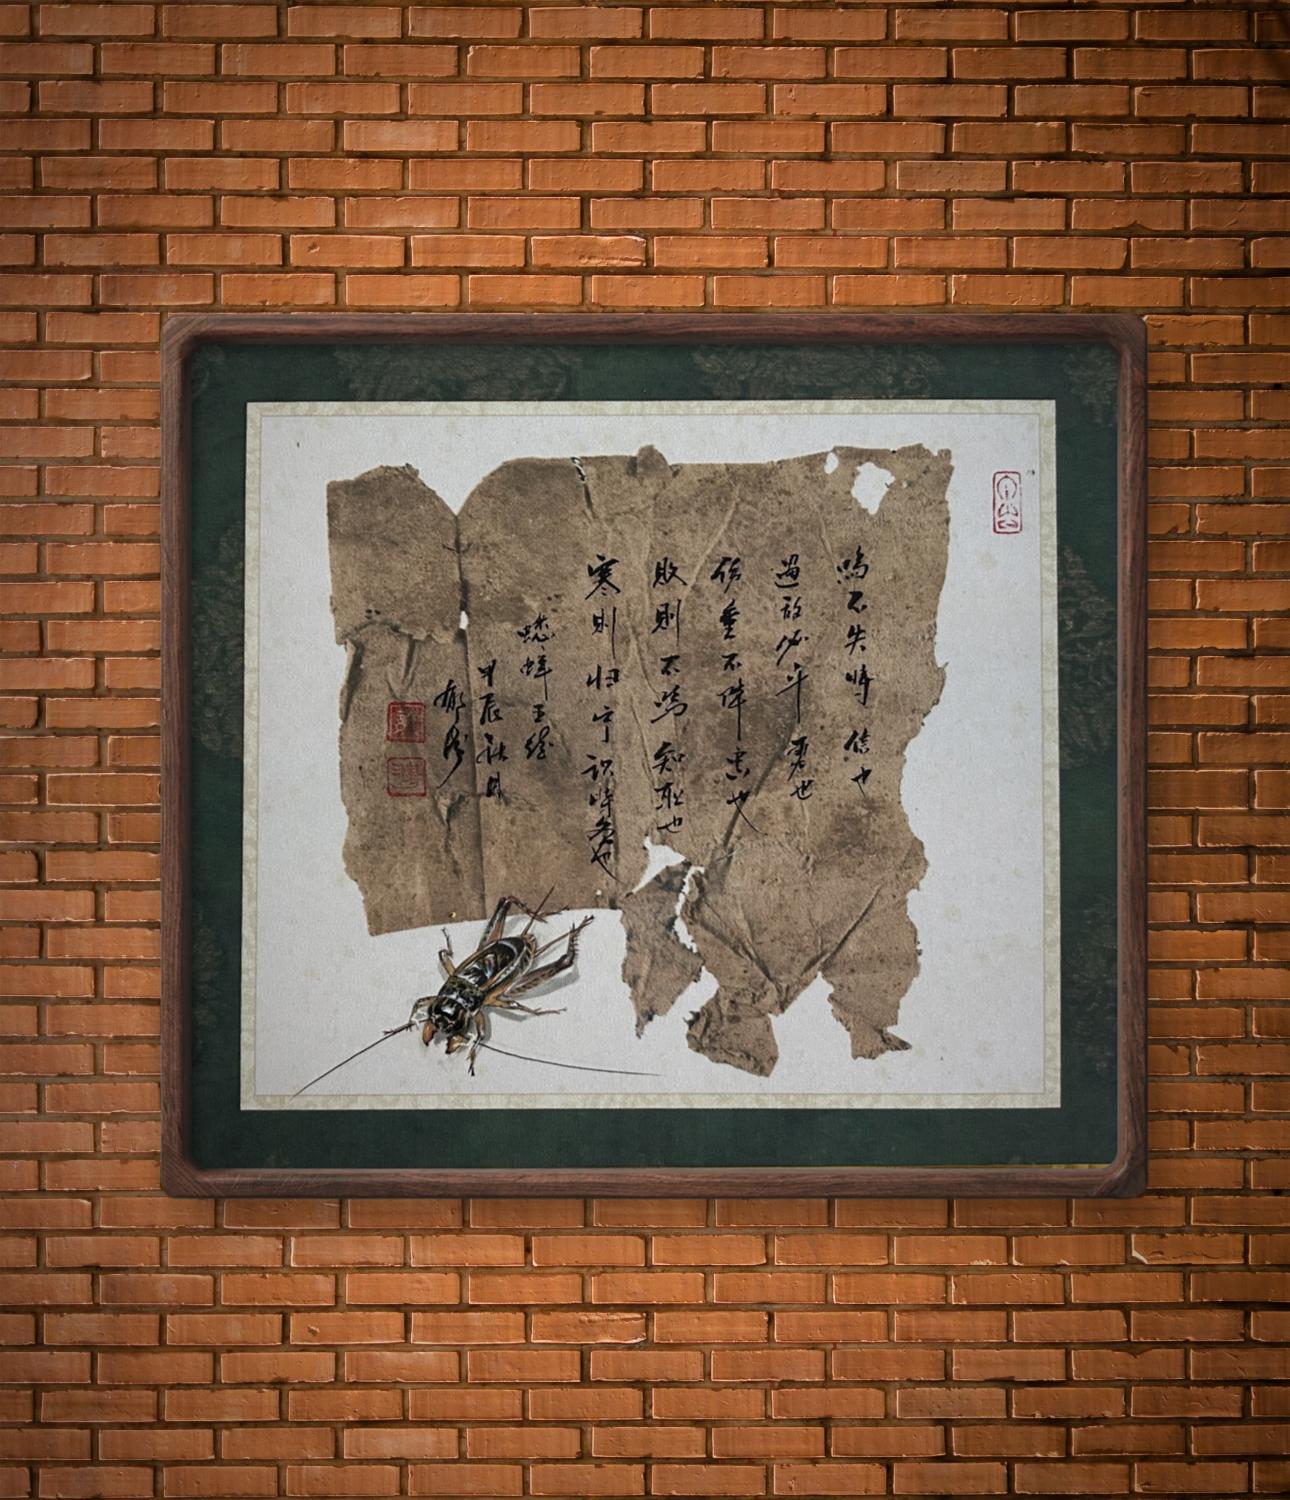 鸣不失时 信也
遇敌必斗 勇也
伤重不降 忠也
败则不鸣 知耻也
寒则归宁 识时务也
蟋蟀五德
甲辰秋月